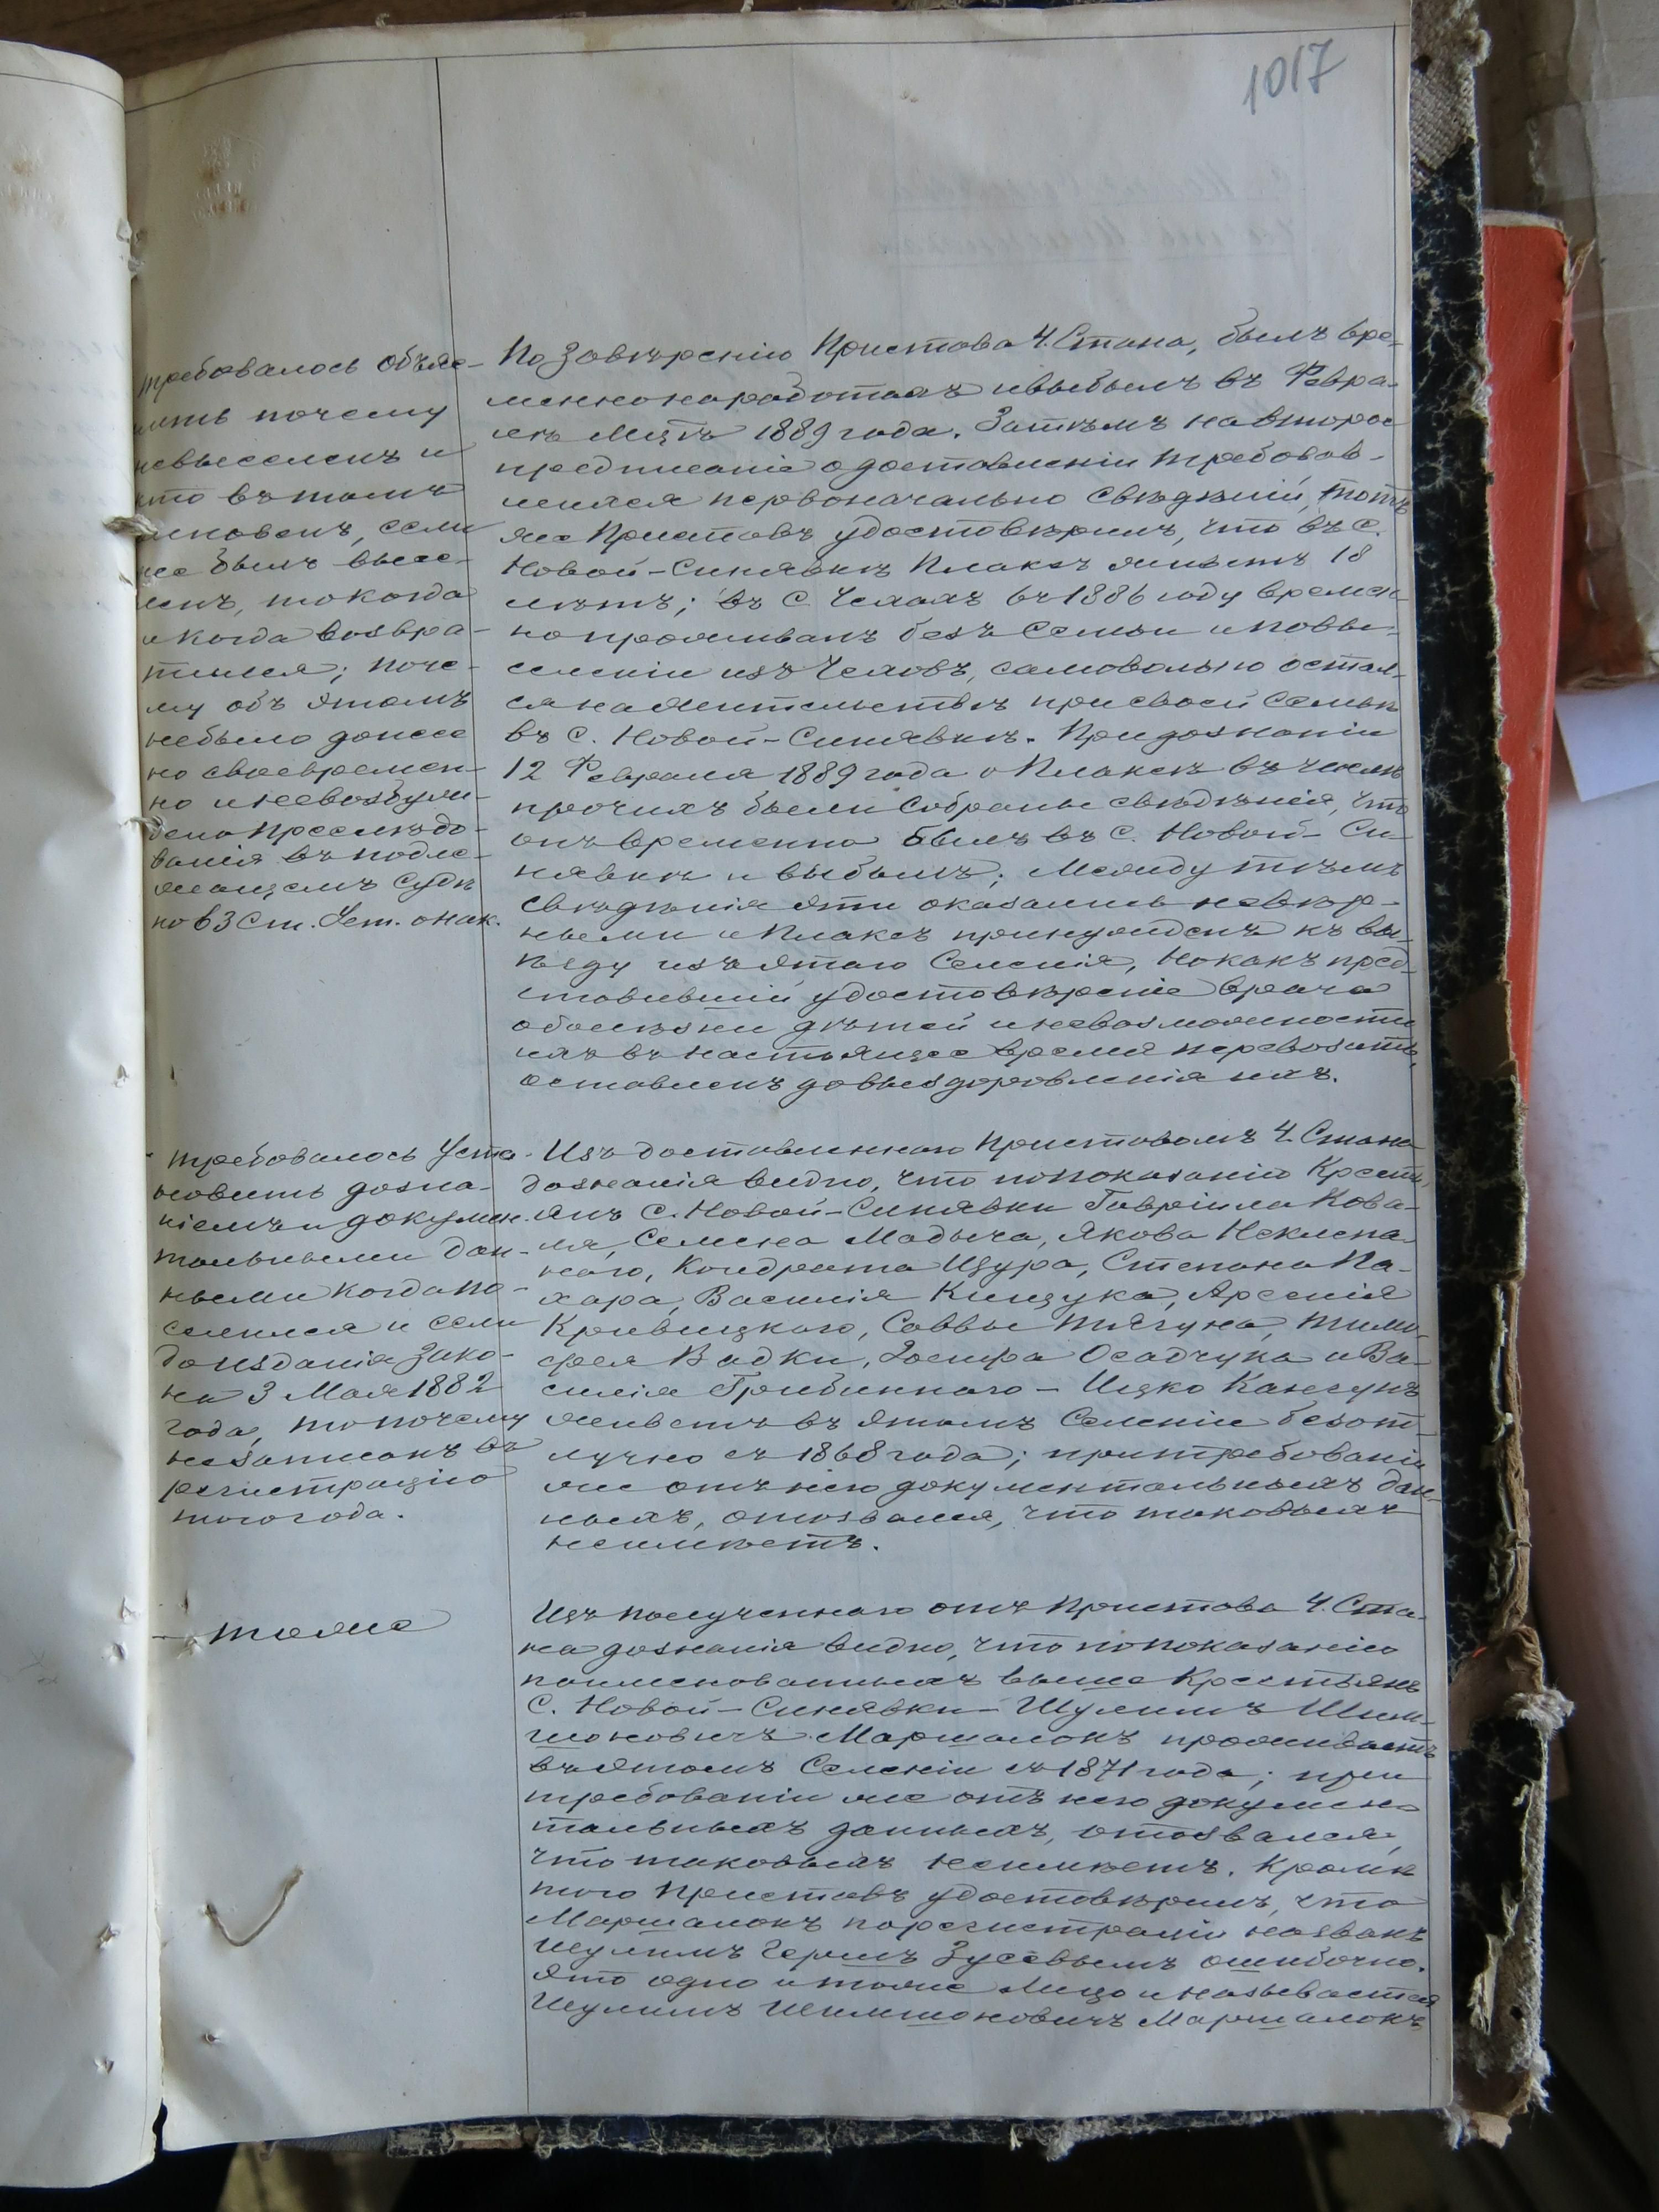 1017
требовалось объяс-
нить почему
невыселенъ и
кто въ томъ
виновенъ, если
же былъ высе-
ленъ, то когда
и когда возвра-
тился; поче-
му объ этомъ
небыло донесе
но своевремен-
но и невозбуж-
дено преслѣдо-
ванія въ подле-
жащемъ судѣ
по 63 Ст. Уст. о нак.
По завѣренію Пристава 4. Стана, былъ вре-
менно на работахъ и выбылъ въ Февра-
лѣ Мцѣ 1889 года. Затѣмъ на второе
предписаніе о доставленіи требовав-
шихся первоначально свѣдѣній, тотъ
же Приставъ удостовѣрилъ, что въ с.
Новой-Синявкѣ Плаксъ живетъ 18
лѣтъ; въ с. Чехахъ въ 1886 году времен-
но проживалъ безъ Семьи и по вы-
селеніи изъ Чеховъ, самовольно остал-
ся на жительствѣ при своей Семьѣ
въ с. Новой-Синявкѣ. При дознаніи
12 Февраля 1889 года о Плаксѣ въ числѣ
прочихъ были собраны свѣдѣнія, что
онъ временно былъ въ с. Новой-Си-
нявкѣ и выбылъ; Между тѣмъ
свѣдѣнія эти оказались невѣр-
ными и Плаксъ принужденъ къ вы-
ѣзду изъ этаго Селенія, но какъ пред-
ставившій удостовѣреніе врача
о болѣзни дѣтей и невозможности
ихъ въ настоящее время перевозить,
оставленъ до выздоровленія ихъ.
требовалось Уста-
новить дозна-
ніемъ и докумен-
тальными дан-
ными когда по-
селился и если
до изданія Зако-
на 3 Мая 1882
года, то почему
не записанъ въ
регистрацію
того года.
Изъ доставленнаго Приставомъ 4 Стана
дознанія видно, что по показанію Крестьянъ
с. Новой-Синявки Гавріила Кова-
ля, Семена Мадыча, Якова Неклена-
наго, Кондрата Щура, Степана Па-
хара, Василія Кищука, Арсенія
Кривицкаго, Саввы Тягуна, Тимо-
фея Вадки, Іосифа Осадчука и Ва-
силія Грибиннаго - Ицко Канегунъ
живетъ въ этомъ Селеніи безот-
лучно съ 1868 года; при требованіи
же отъ него документальныхъ дан-
ныхъ, отозвался, что таковыхъ
не имѣетъ.
- тоже
Изъ полученнаго отъ Пристава 4. Ста-
на дознанія видно, что по показанію
поименованныхъ выше Крестьянъ
с. Новой-Синявки - Шулимъ Шим-
шоновичъ Маршалокъ проживаетъ
въ этомъ Селеніи съ 1871 года; при
требованіи же отъ него докумен-
тальныхъ данныхъ, отозвался,
что таковыхъ не имѣетъ. Кромѣ
того Приставъ удостовѣрилъ, что
Маршалокъ по регистраціи названъ
Шулимъ Гершъ Зусевымъ ошибочно.
Это одно и тоже Лицо и называется
Шулимъ Шимшоновичъ Маршалокъ